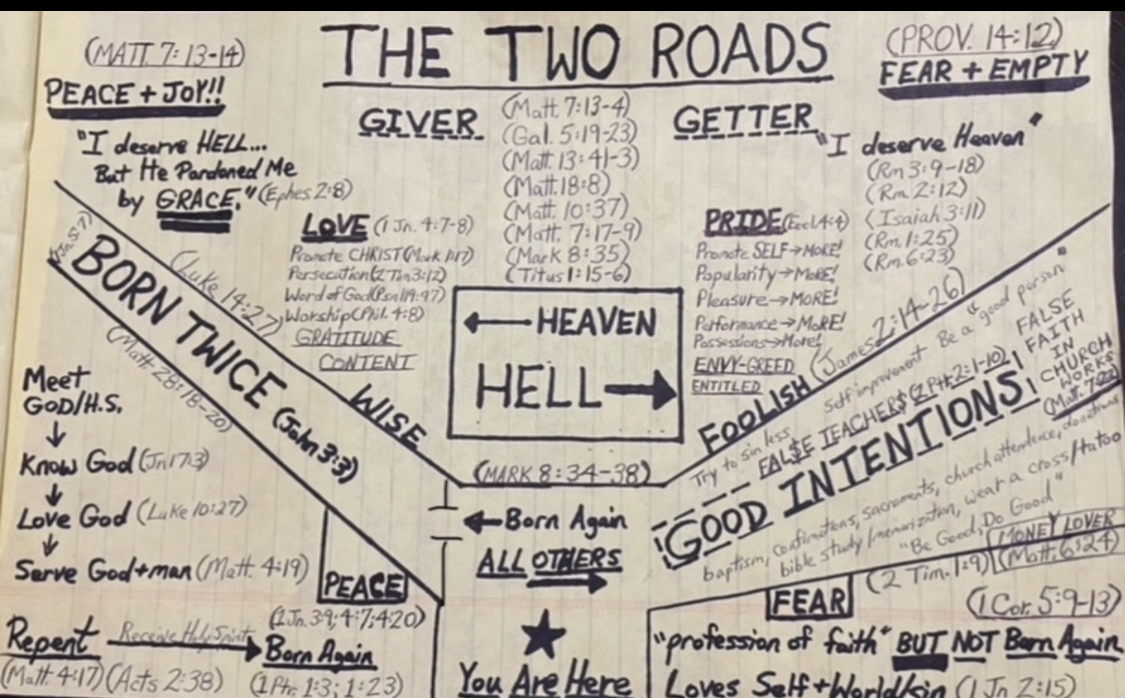 THE TWO ROADS
(MATT. 7:13-14)
PEACE + JOY!!
"I deserve HELL...
But He Pardoned Me
by GRACE." (Ephes. 2:8)
GIVER
(Matt. 7:13-4)
(Gal. 5:19-23)
(Matt. 13:41-3)
(Matt. 18:8)
(Matt. 10:37)
(Matt. 7:17-9)
(Mark 8:35)
(Titus 1:15-6)
GETTER
(PROV. 14:12)
FEAR + EMPTY
"I deserve Heaven"
(Rm 3:9-18)
(Rm. 2:12)
(Isaiah 3:11)
(Rm. 1:25)
(Rm. 6:23)
LOVE (1 Jn. 4:7-8)
Promote CHRIST (Mark 1:17)
Persecution (2 Tim 3:12)
Word of God (Psm 119:97)
Worship (Phil. 4:8)
GRATITUDE
CONTENT
PRIDE (Eccl. 4:4)
Promote SELF→MORE!
Popularity→MORE!
Pleasure→MORE!
Performance→MORE!
Possessions→More!
ENVY-GREED
ENTITLED
(Jn. 5:7)
(Luke 14:27)
BORN TWICE (John 3:3)
WISE
(Matt. 28:18-20)
← HEAVEN
HELL →
(MARK 8:34-38)
FOOLISH (James 2:14-26)
Self improvement Be a "good person"
Try to sin less
FAL$E TEACHER$ (2 Ptr. 2:1-10)
GOOD INTENTIONS
FALSE
FAITH
IN
CHURCH
WORKS
(Matt. 7:22)
baptism, confirmations, sacraments, church attendence, donations
bible study/memorization, wear a cross/tatoo
"Be Good, Do Good"
(2 Tim. 1:9)
MONEY LOVER
(Matt. 6:24)
Meet
GOD/H.S.
↓
Know God (Jn 17:3)
↓
Love God (Luke 10:27)
↓
Serve God + man (Matt. 4:19)
PEACE
(1 Jn. 3:9; 4:7; 4:20)
Repent Receive Holy Spirit → Born Again
(Matt. 4:17) (Acts 2:38) (1 Ptr. 1:3; 1:23)
← Born Again
ALL OTHERS →
★
You Are Here
FEAR
(1 Cor. 5:9-13)
"profession of faith" BUT NOT Born Again
Loves Self + World/sin (1 Jn 2:15)